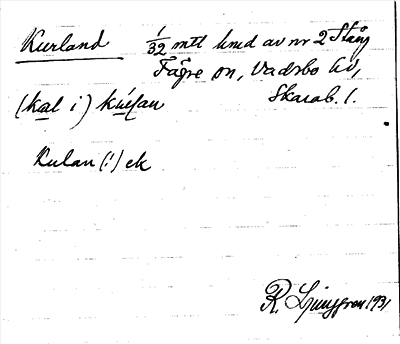 Kurland 1/32 mtl hmd av nr 2 Stång
Fägre sn, Vadsbo hd,
Skarab. l.
(kal i)
Kulan (i) ek
R. Ljunggren 1931